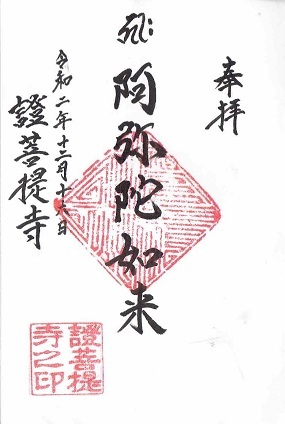 奉拝
阿弥陀如来
令和二年十二月十六日
證菩提寺
證菩提
寺之印